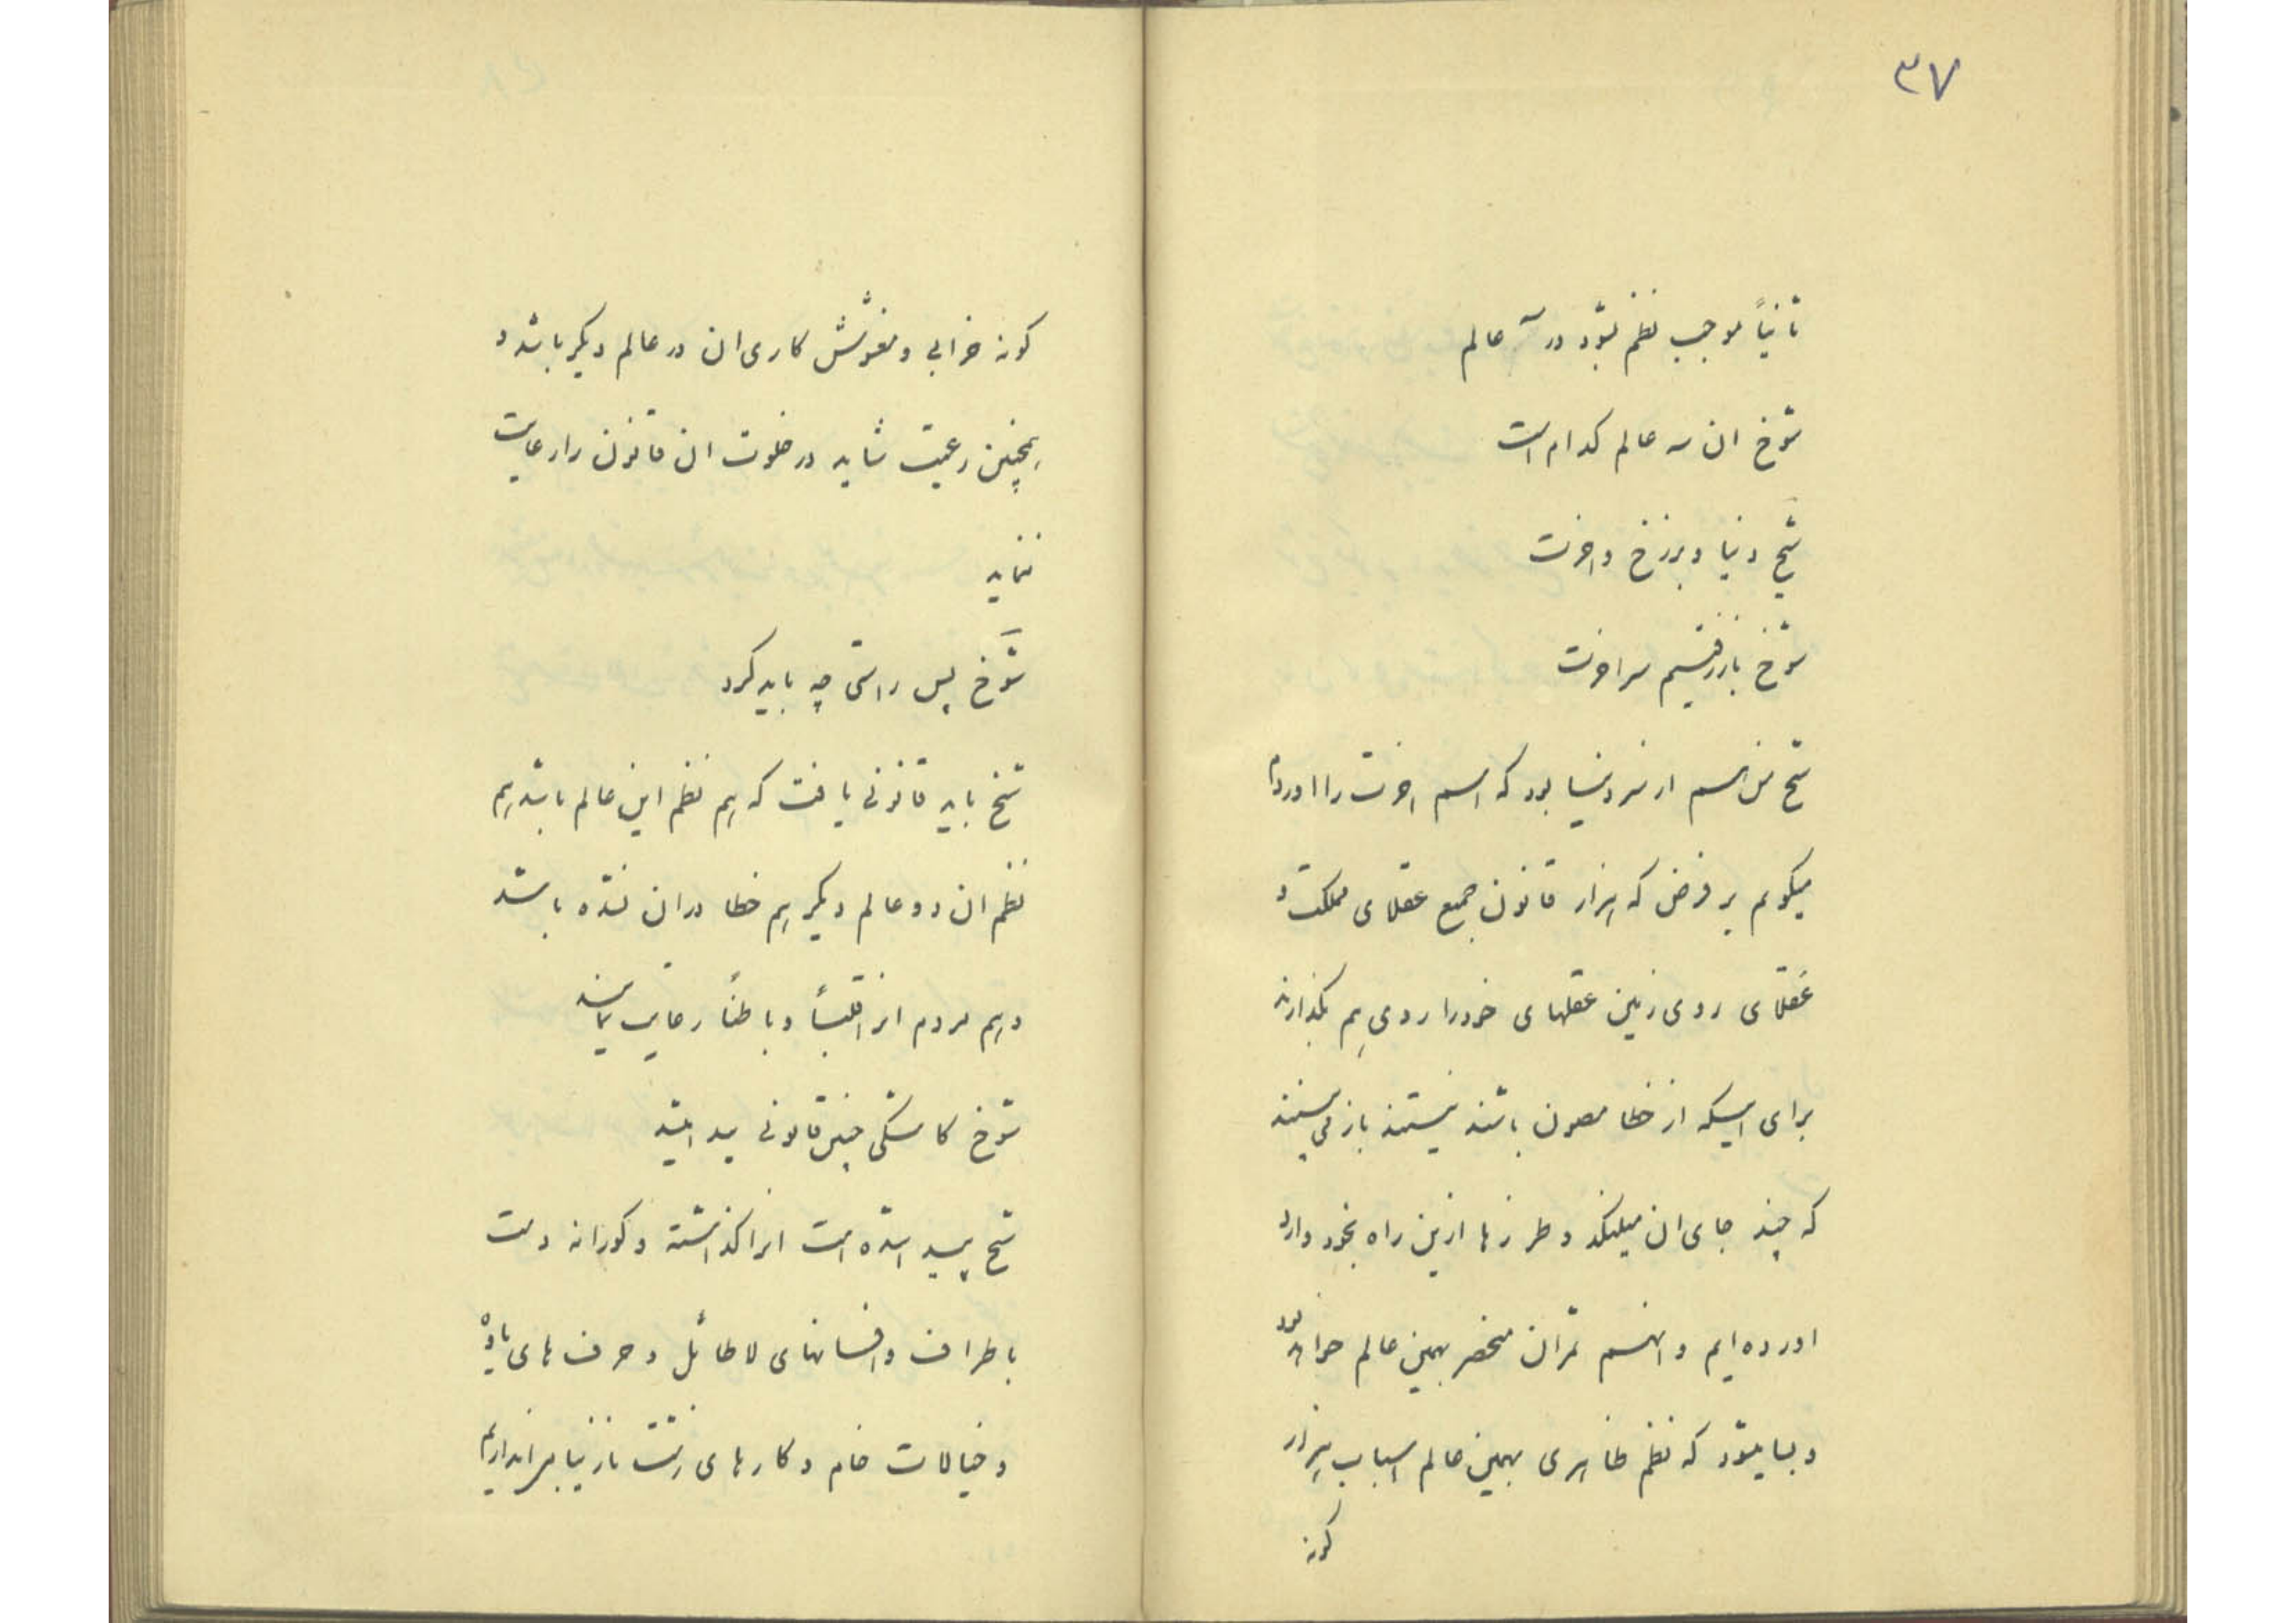 ۳۷
ثانیاً موجب نظم نشود در سه عالم
شوخ ان سه عالم کدام است
شیخ دنیا و برزخ و اخرت
شوخ باز رفتیم سر اخرت
شیخ من هم از سر دنیا بود که اسم اخرت را اوردم
میکویم بر فرض که هزار قانون جمیع عقلای مملکت و
عقلای روی زمین عقلهای خود را روی هم بگذارند
برای اینکه از خطا مصون باشند نیستند باز می بینند
که چند جای ان میلنگد و طرزها ازین راه بخود وارد
اورده ایم و انهم ثمر ان منحصر بهمین عالم خواهد بود
و بسا میشود که نظم ظاهری بهمین عالم اسباب هزار
کونه
کونه خرابی و مغشوش کاری ان در عالم دیکر باشد و
همچنین رعیت شاید در خلوت ان قانون را رعایت
ننماید
شوخ پس راستی چه باید کرد
شیخ باید قانونی یافت که هم نظم این عالم باشد هم
نظم ان دو عالم دیکر هم خطا در ان نشده باشد
و هم مردم انرا قلباً و باطناً رعایت نمایند
شوخ کاشکی چنین قانونی پیدا میشد
شیخ پیدا شده است انرا کذاشته و کورانه دست
باطراف و افسانهای لاطائل و حرف های یاوه
و خیالات خام و کارهای زشت نازیبا میاندازیم